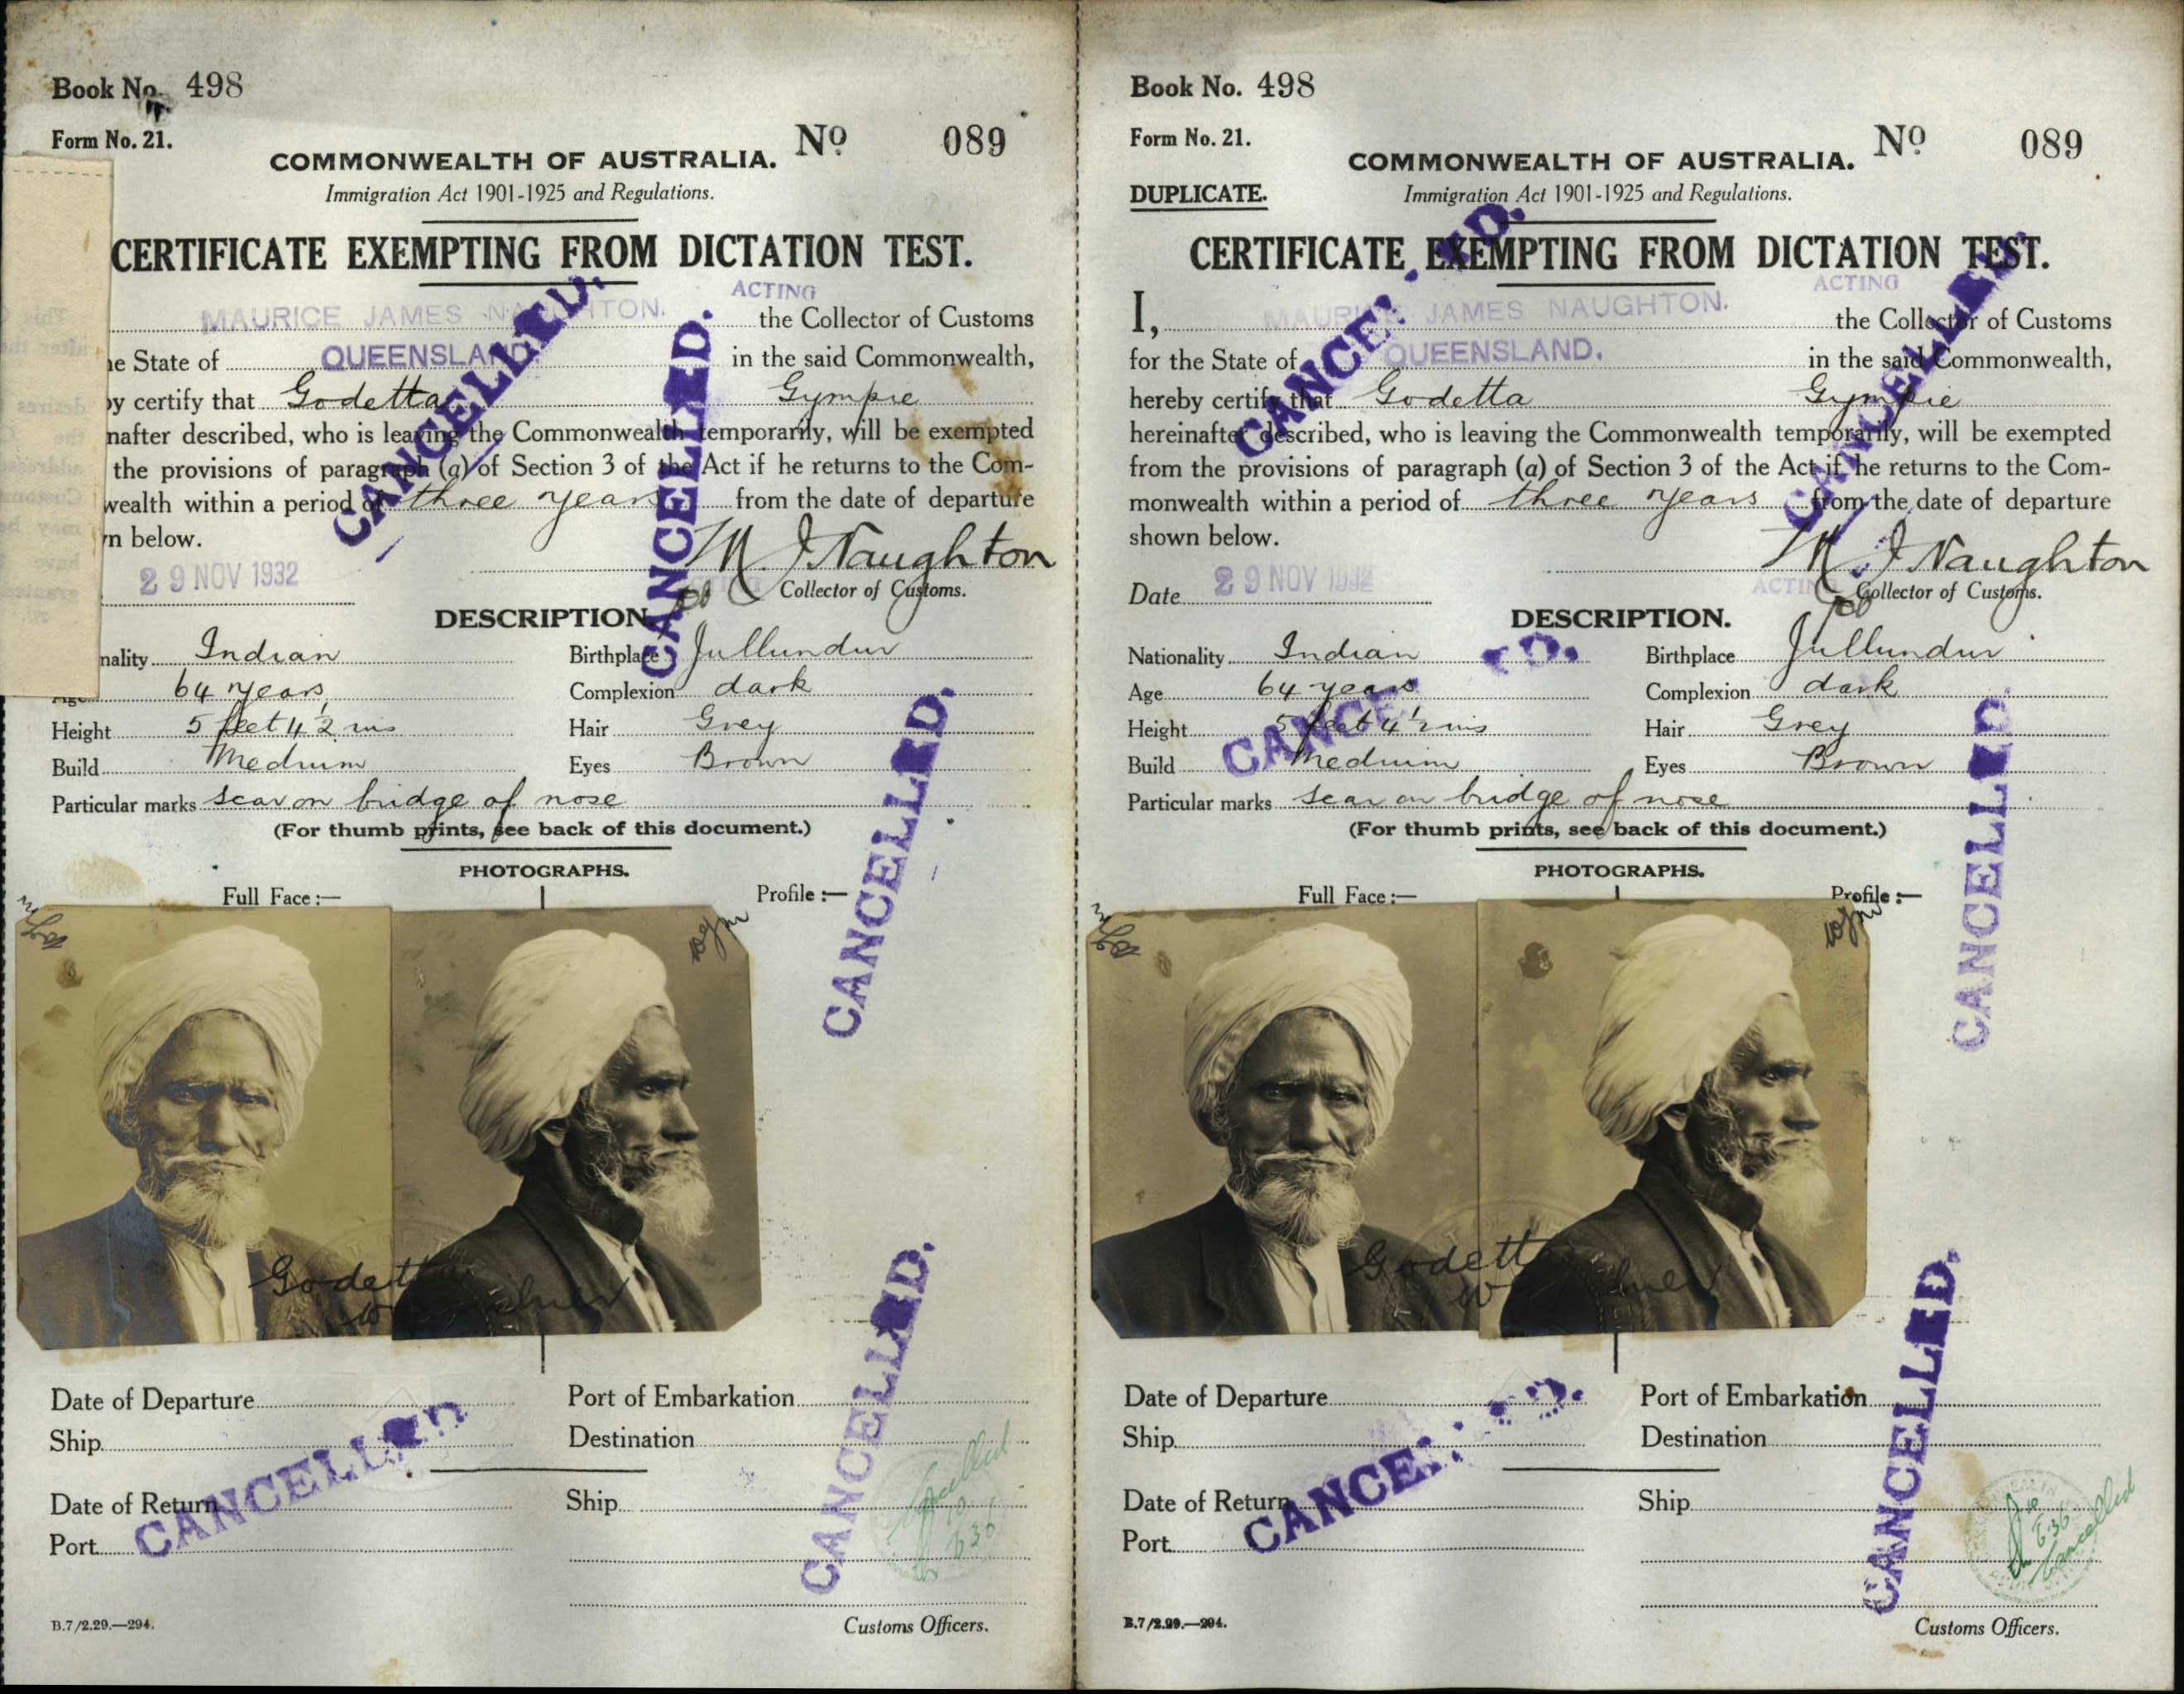 Book No. 498
Form No. 21.
No 089
COMMONWEALTH OF AUSTRALIA.
Immigration Act 1901-1925 and Regulations.
CERTIFICATE EXEMPTING FROM DICTATION TEST.
MAURICE JAMES NAUGHTON. ACTING the Collector of Customs
he State of QUEENSLAND in the said Commonwealth,
by certify that Godetta Gympie
nafter described, who is leaving the Commonwealth temporarily, will be exempted
the provisions of paragraph (a) of Section 3 of the Act if he returns to the Com-
wealth within a period of three years from the date of departure
n below.
M J Naughton
29 NOV 1932
ACTING Collector of Customs.
DESCRIPTION.
nality Indian Birthplace Jullundur
Age 64 years Complexion dark
Height 5 feet 4 1/2 ins Hair Grey
Build Medium Eyes Brown
Particular marks scar on bridge of nose
(For thumb prints, see back of this document.)
PHOTOGRAPHS.
Full Face :— Profile :—
Godetta
Date of Departure Port of Embarkation
Ship Destination
Date of Return Ship
Port
B.7/2.29.—294. Customs Officers.
CANCELLED.
CANCELLED.
CANCELLED.
CANCELLED.
CANCELLED
Cancelled
10
6 36
Book No. 498
Form No. 21.
No 089
COMMONWEALTH OF AUSTRALIA.
DUPLICATE.
Immigration Act 1901-1925 and Regulations.
CERTIFICATE EXEMPTING FROM DICTATION TEST.
I, MAURICE JAMES NAUGHTON. ACTING the Collector of Customs
for the State of QUEENSLAND. in the said Commonwealth,
hereby certify that Godetta Gympie
hereinafter described, who is leaving the Commonwealth temporarily, will be exempted
from the provisions of paragraph (a) of Section 3 of the Act if he returns to the Com-
monwealth within a period of three years from the date of departure
shown below.
M J Naughton
Date 29 NOV 1932
ACTING Collector of Customs.
DESCRIPTION.
Nationality Indian Birthplace Jullundur
Age 64 years Complexion dark
Height 5 feet 4 1/2 ins Hair Grey
Build Medium Eyes Brown
Particular marks scar on bridge of nose
(For thumb prints, see back of this document.)
PHOTOGRAPHS.
Full Face :— Profile :—
Godett
Date of Departure Port of Embarkation
Ship Destination
Date of Return Ship
Port
B.7/2.29.—294. Customs Officers.
CANCELLED.
CANCELLED.
CANCELLED.
CANCELLED.
CANCELLED.
CANCELLED.
10
6.36
Cancelled